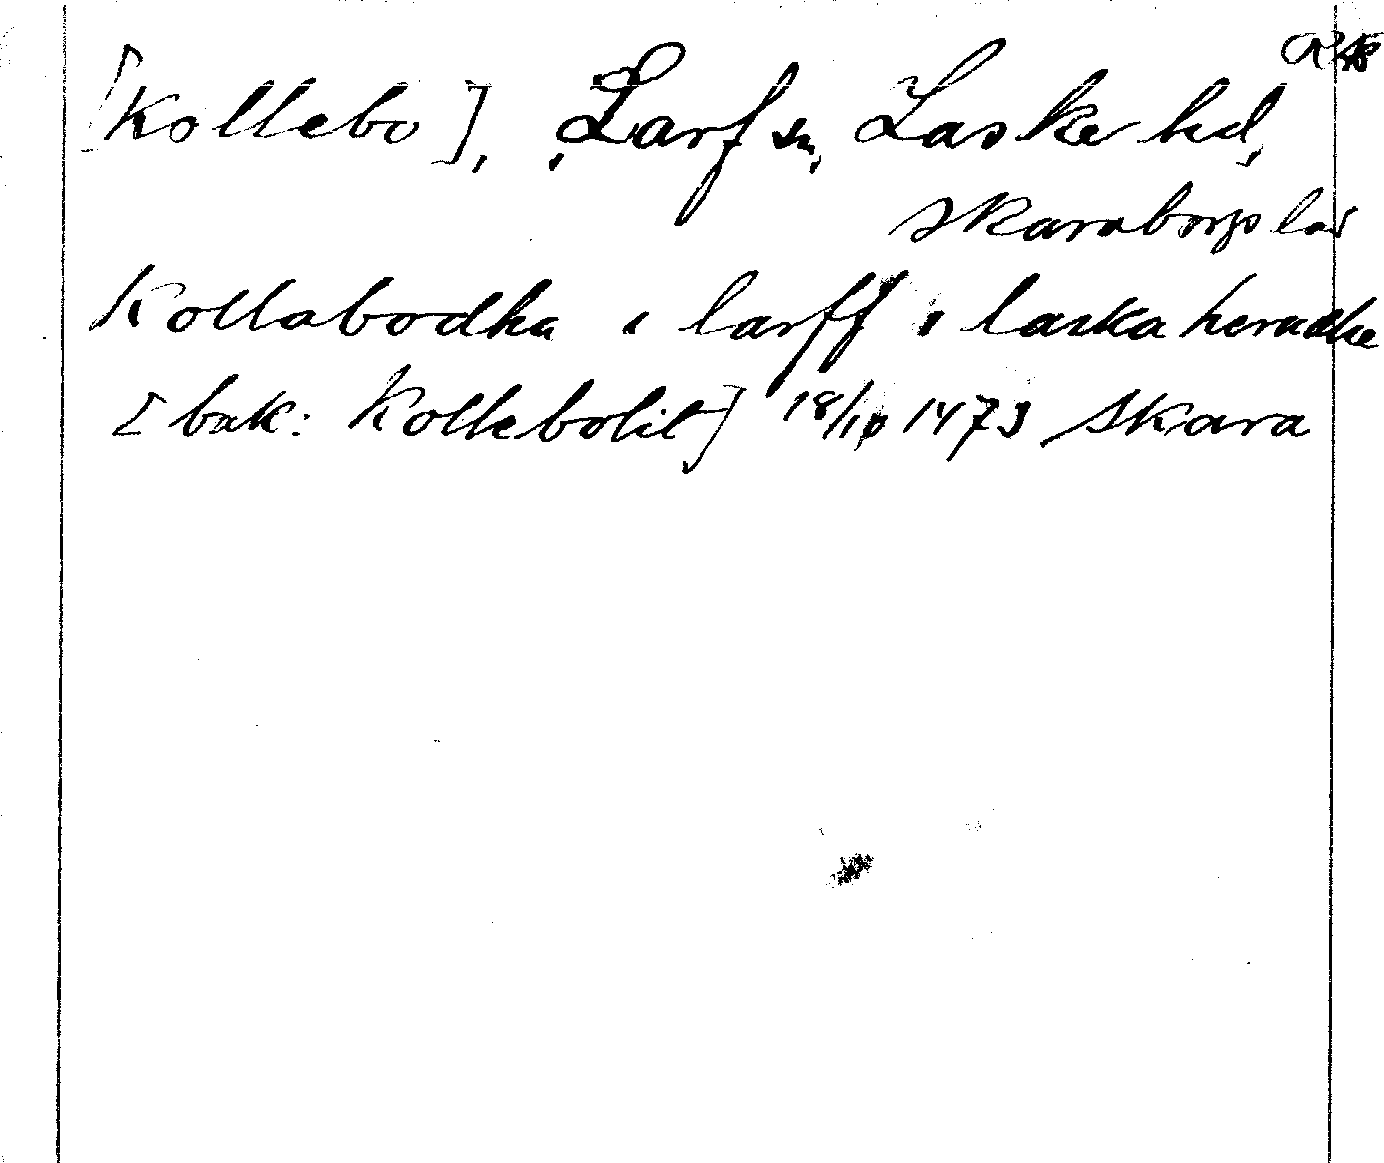 RAP
[Kollebo], Larf sn, Laske hd,
Skaraborgs län
Kollabodha i larff i laska heradhe
[bak: Kollebolit] 18/10 1473 Skara